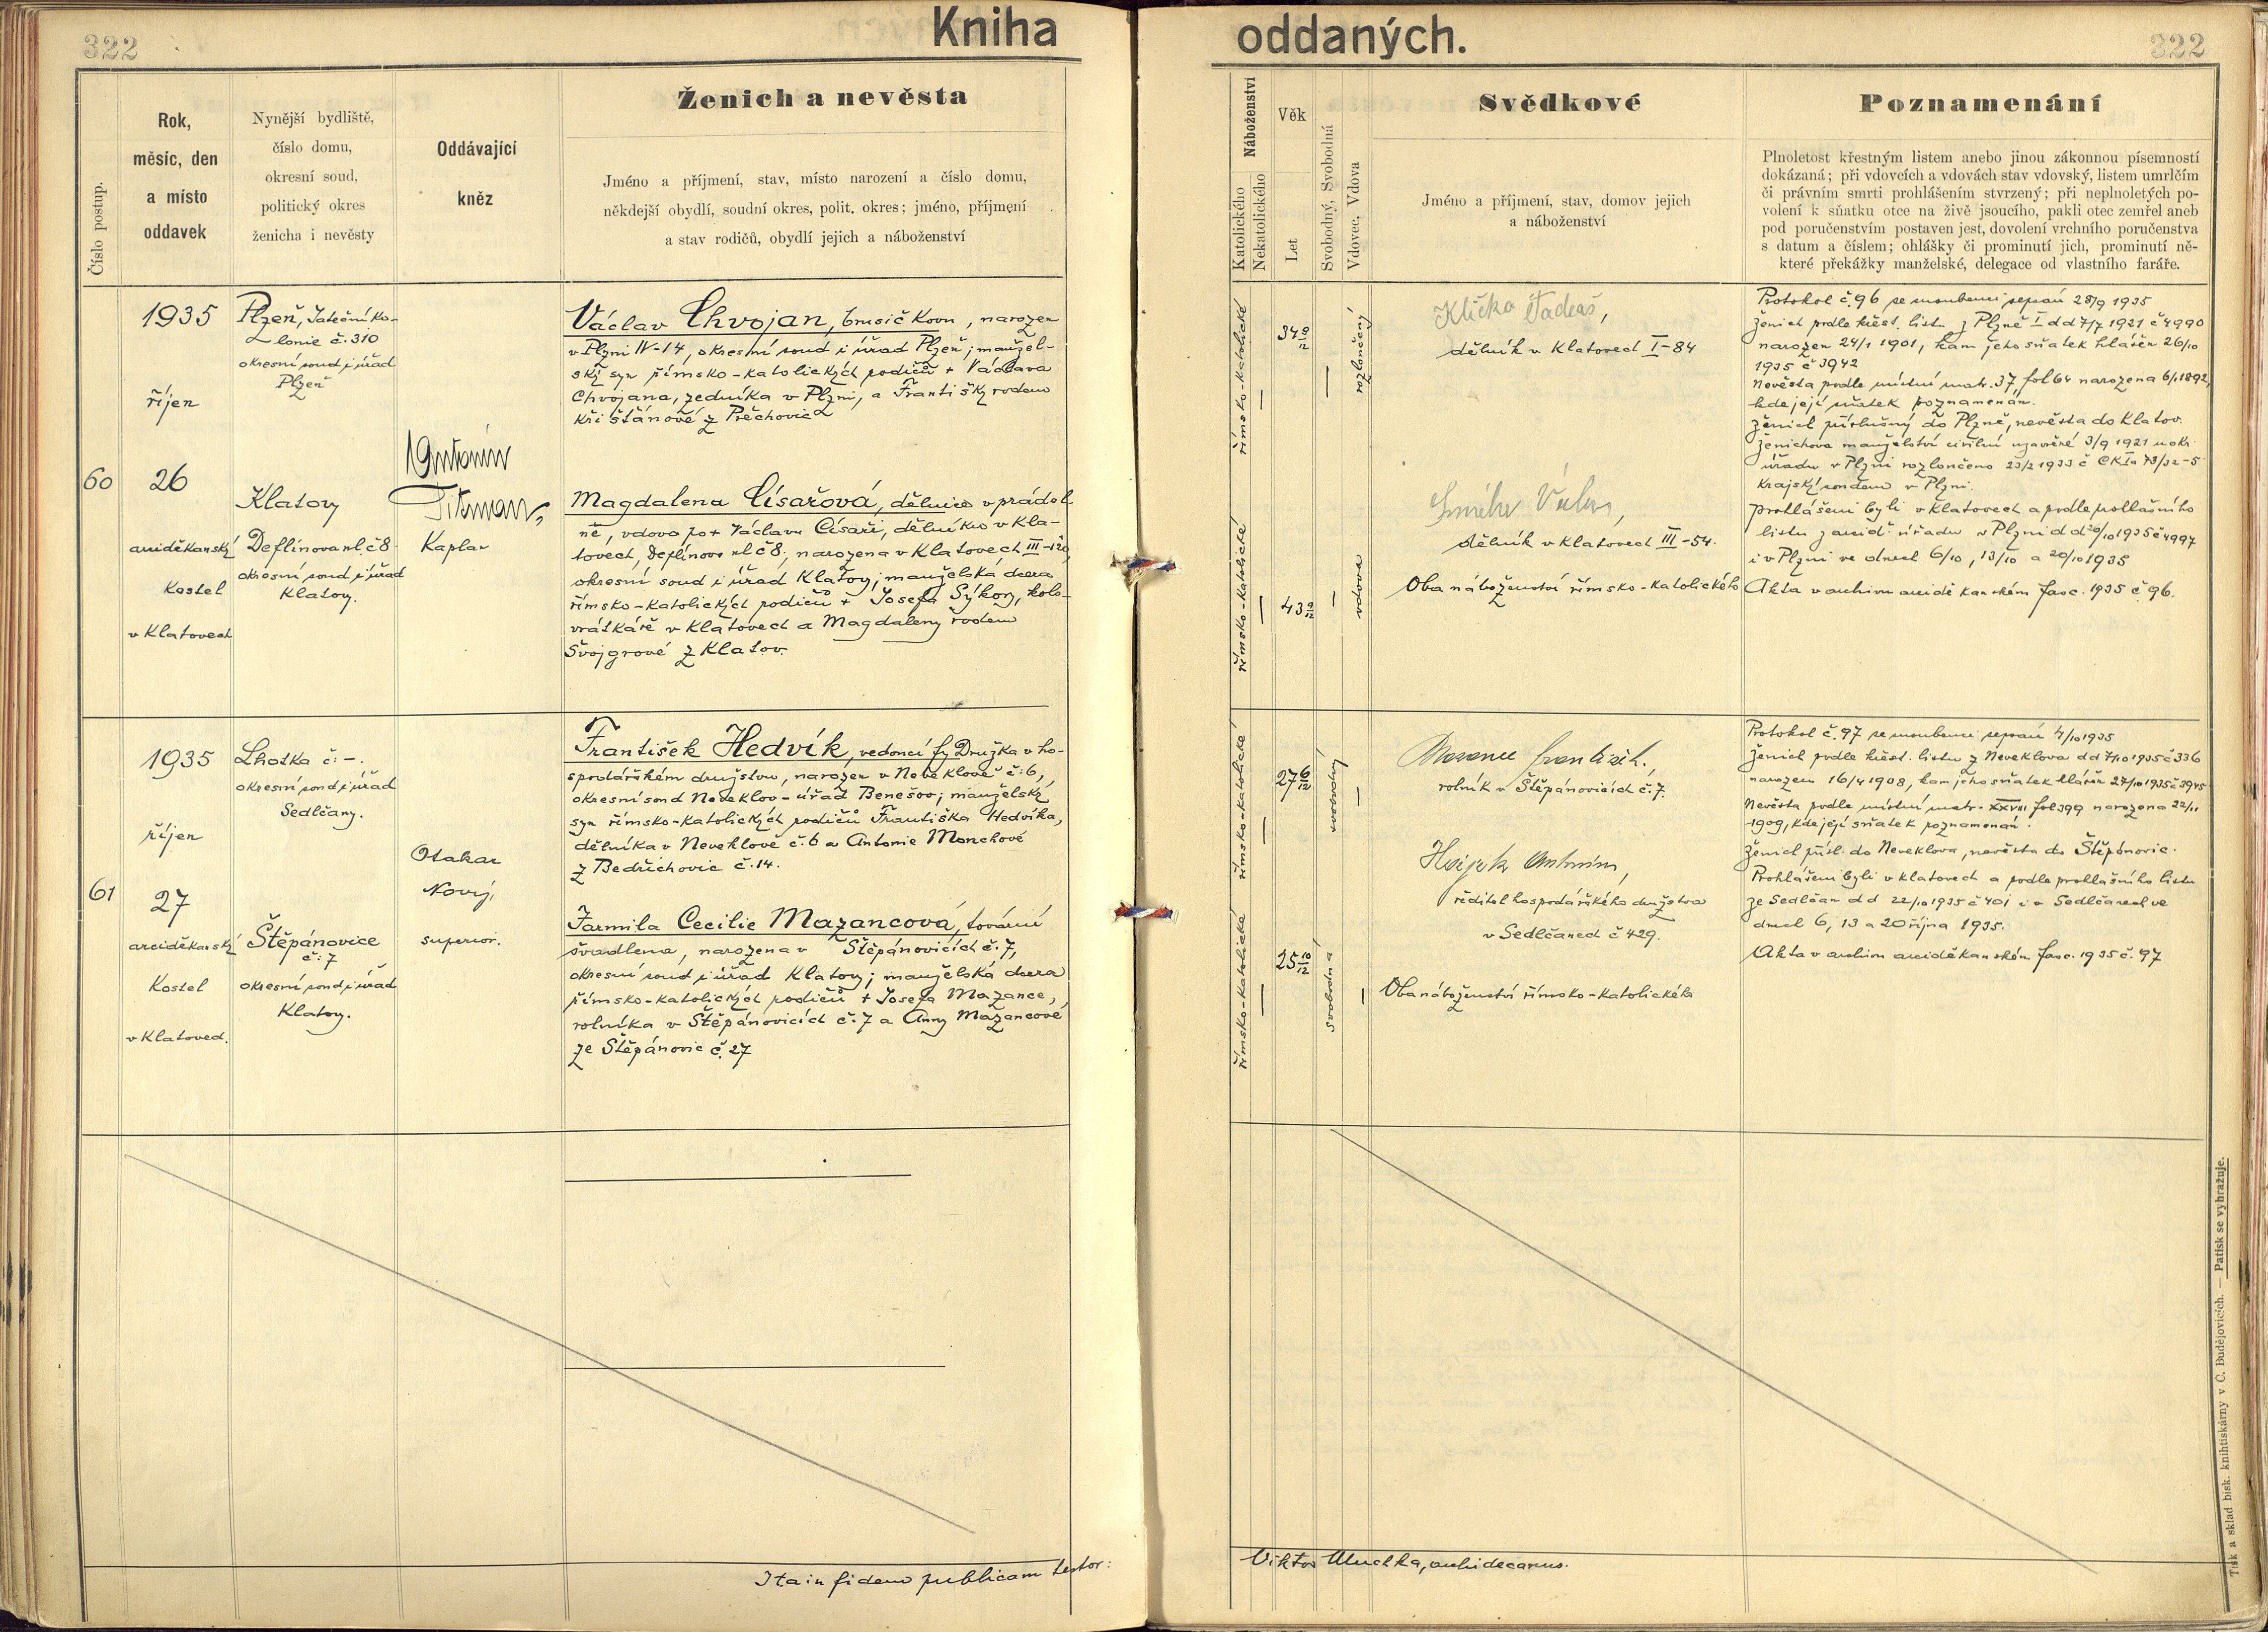 322
Kniha oddaných.
322
Číslo postup.
Rok,
měsíc, den
a místo
oddavek
Nynější bydliště,
číslo domu,
okresní soud,
politický okres
ženicha i nevěsty
Oddávající
kněz
Ženich a nevěsta
Jméno a příjmení, stav, místo narození a číslo domu,
někdejší obydlí, soudní okres, polit. okres; jméno, příjmení
a stav rodičů, obydlí jejich a náboženství
Náboženství
Katolického
Nekatolického
Věk
Let
Svobodný, Svobodná
Vdovec, Vdova
Svědkové
Jméno a příjmení, stav, domov jejich
a náboženství
Poznamenání
Plnoletost křestným listem anebo jinou zákonnou písemností
dokázaná; při vdovcích a vdovách stav vdovský, listem umrlčím
či právním smrti prohlášením stvrzený; při neplnoletých po-
volení k sňatku otce na živě jsoucího, pakli otec zemřel aneb
pod poručenstvím postaven jest, dovolení vrchního poručenstva
s datum a číslem; ohlášky či prominutí jich, prominutí ně-
které překážky manželské, delegace od vlastního faráře.
60
1935
říjen
26
arciděkanský
kostel
v Klatovech
Plzeň, Jateční ko-
lonie č. 310
okresní soud i úřad
Plzeň
Klatovy
Deflínova ul. č 8
okresní soud i úřad
Klatovy.
Antonín
Kaplan
Václav Chvojan, brusič kovu, narozen
v Plzni IV-14, okresní soud i úřad Plzeň; manžel-
ský syn římsko-katolických rodičů + Václava
Chvojana, zedníka v Plzni, a Františky rodem
Křišťánové z Předhovic
Magdalena Císařová, dělnice v prádel-
ně, vdova po + Václavu Císaři, dělníku v Kla-
tovech, Deflínova ul č 8, narozena v Klatovech III-120
okresní soud i úřad Klatovy; manželská dcera
římsko-katolických rodičů + Josefa Sýkory, kolo-
vrátkáře v Klatovech a Magdaleny rodem
Švojgrové z Klatov.
římsko-katolické
34 9/12
rozloučený
římsko-katolické
43 9/12
vdova
Klička Tadeáš,
dělník v Klatovech I-84
dělník v Klatovech III-54.
Oba náboženství římsko-katolického
Protokol č. 96 se snoubenci sepsán 28/9 1935
Ženich podle křest. listu z Plzně I d d 7/7 1921 č 4990
narozen 24/1 1901, kam jeho sňatek hlášen 26/10
1935 č 3942
Nevěsta podle místní matr. 37, fol 64 narozena 6/1 1892,
kde její sňatek poznamenán.
Ženich příslušný do Plzně, nevěsta do Klatov.
Ženichovo manželství civilní uzavřené 3/9 1921 u okr.
úřadu v Plzni rozloučeno 23/2 1933 č CK Ia 73/32-5
Krajským soudem v Plzni.
Prohlášeni byli v Klatovech a podle prohlašního
listu arciď. úřadu v Plzni d d 20/10 1935 č 4997
i v Plzni ve dnech 6/10, 13/10 a 20/10 1935
Akta v archivu arciděkanském fasc. 1935 č. 96.
61
1935
říjen
27
arciděkanský
Kostel
v Klatovech.
Lhotka č: -.
okresní soud i úřad
Sedlčany.
Štěpánovice
č: 7
okresní soud i úřad
Klatovy.
Otakar
Nový,
superior.
František Hedvík, vedoucí fy Družka v ho-
spodářském družstvu, narozen v Neveklově č: 6,
okresní soud Neveklov - úřad Benešov; manželský
syn římsko-katolických rodičů Františka Hedvíka,
dělníka v Neveklově č. 6 a Antonie Monchové
z Bedřichovic č. 14.
Jarmila Cecilie Mazancová, tovární
švadlena, narozena v Štěpánovicích č. 7,
okresní soud i úřad Klatovy; manželská dcera
římsko-katolických rodičů + Josefa Mazance,
rolníka v Štěpánovicích č. 7 a Anny Mazancové
ze Štěpánovic č. 27
římsko-katolické
27 6/12
svobodný
římsko-katolické
25 10/12
svobodná
Mazanec František,
rolník v Štěpánovicích č. 7.
Antonín,
ředitel hospodářského družstva
v Sedlčanech č 429.
Oba náboženství římsko-katolického
Protokol č. 97 se snoubenci sepsán 4/10 1935
Ženich podle křest. listu z Neveklova d d 7/10 1935 č 336
narozen 16/4 1908, kam jeho sňatek hlášen 27/10 1935 č 3945
Nevěsta podle místní matr. XXXVII fol 399 narozena 22/11
1909, kde její sňatek poznamenán.
Ženich přísl. do Neveklova, nevěsta do Štěpánovic.
Prohlášeni byli v Klatovech a podle prohlašního listu
ze Sedlčan d d 22/10 1935 č 401 i v Sedlčanech ve
dnech 6, 13 a 20 října 1935.
Akta v archivu arciděkanském fasc. 1935 č. 97
Ita in fidem publicam testor:
Viktor archidecanus.
Tisk a sklad bisk. knihtiskárny v Č. Budějovicích. — Patisk se vyhražuje.